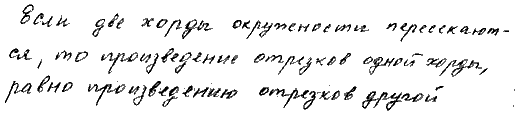 Если две хорды окружности пересекают-
ся, то произведение отрезков одной хорды,
равно произведению отрезков другой